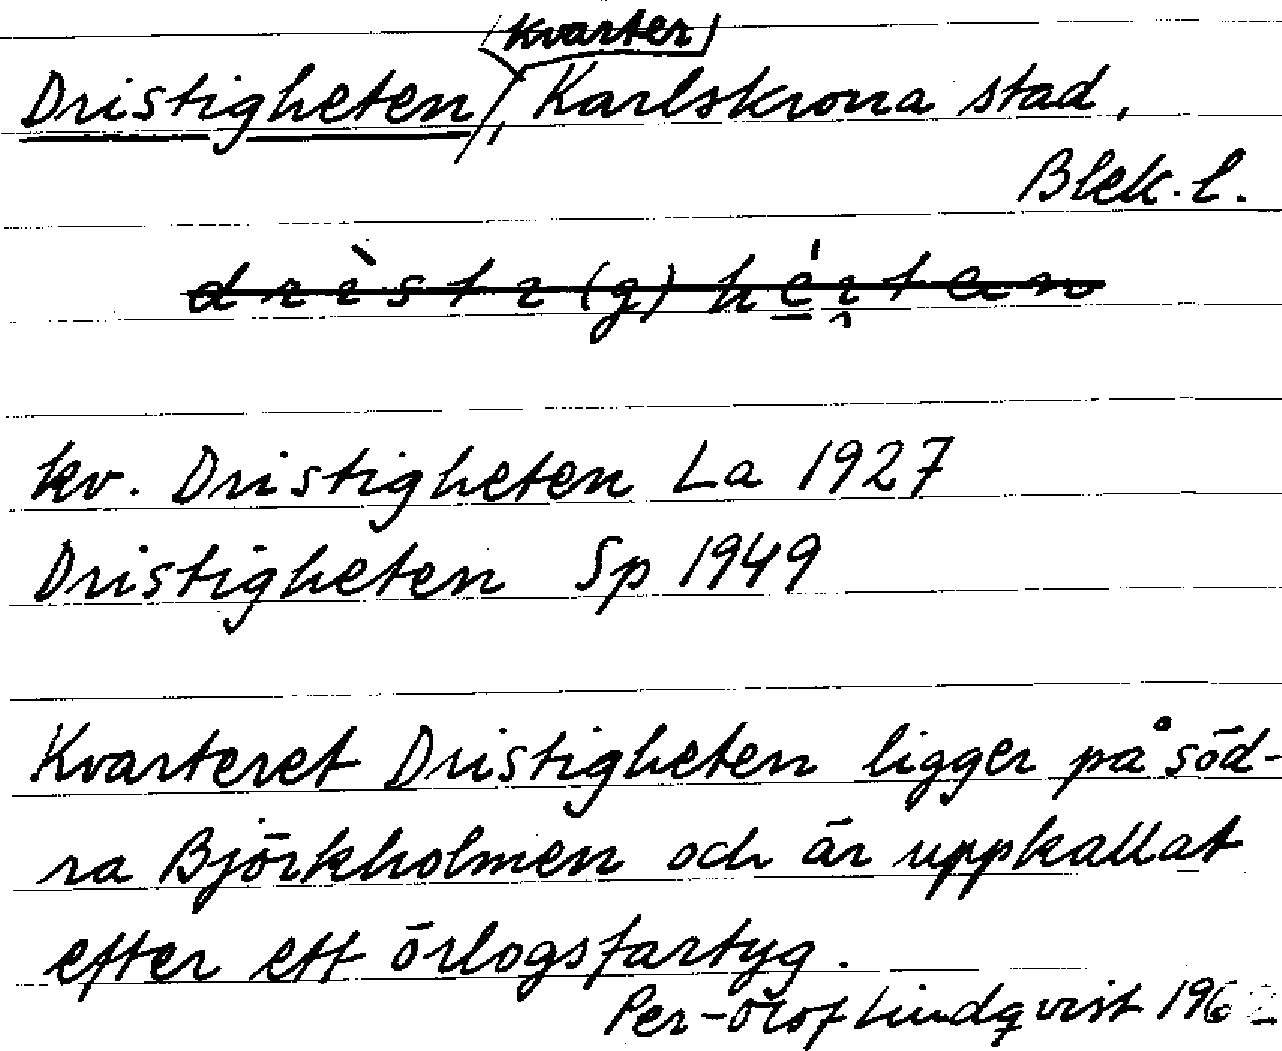 kvarter
Dristigheten, Karlskrona stad,
Blek. l.
kv. Dristigheten La 1927
Dristigheten Sp 1949
Kvarteret Dristigheten ligger på söd-
ra Björkholmen och är uppkallat
efter ett örlogsfartyg.
Per-Olof Lindqvist